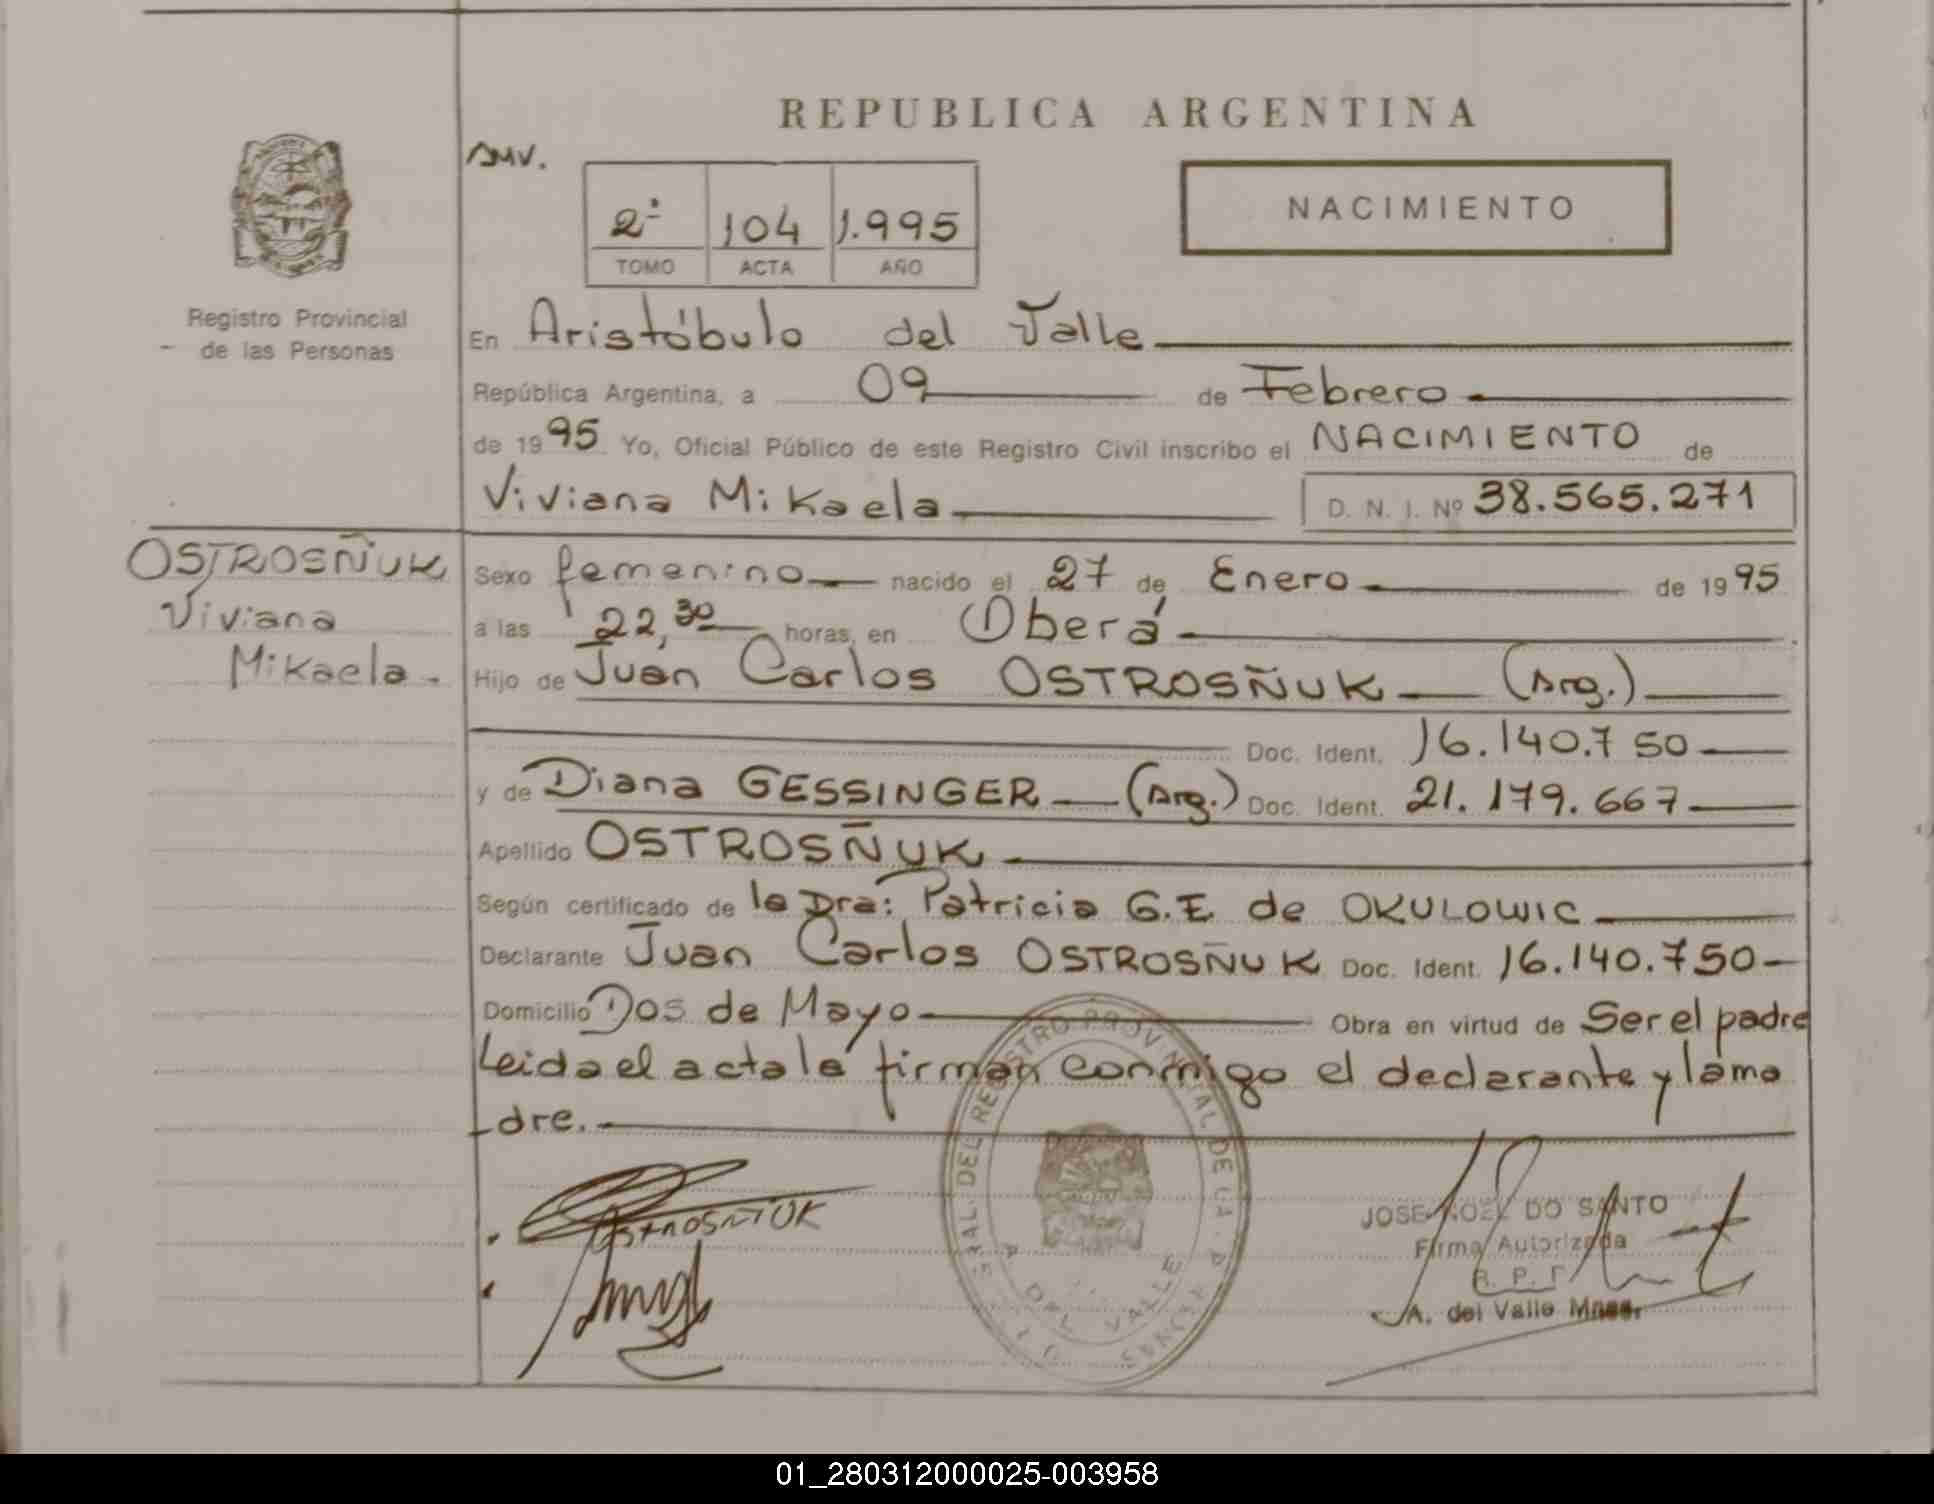 REPUBLICA ARGENTINA
AMV.
2º 104 1.995
TOMO ACTA AÑO
NACIMIENTO
Registro Provincial
de las Personas
En Aristóbulo del Valle
República Argentina, a 09 de Febrero
de 1995 Yo, Oficial Público de este Registro Civil inscribo el NACIMIENTO de
Viviana Mikaela D. N. I. Nº 38.565.271
OSTROSÑUK
Viviana
Mikaela.
Sexo femenino nacido el 27 de Enero de 1995
a las 22,30 horas, en Oberá
Hijo de Juan Carlos OSTROSÑUK (Arg.)
Doc. Ident. 16.140.750
y de Diana GESSINGER (Arg.) Doc. Ident. 21.179.667
Apellido OSTROSÑUK
Según certificado de la Dra: Patricia G.E. de OKULOWIC
Declarante Juan Carlos OSTROSÑUK Doc. Ident. 16.140.750
Domicilio Dos de Mayo Obra en virtud de Ser el padre
Leida el acta la firman conmigo el declarante y la ma
dre.
OSTROSÑUK
DEL REGISTRO PROVINCIAL DE LA
A. DEL VALLE
JOSE NOEL DO SANTO
Firma Autorizada
R. P. P.
A. del Valle Mnes.
01_280312000025-003958